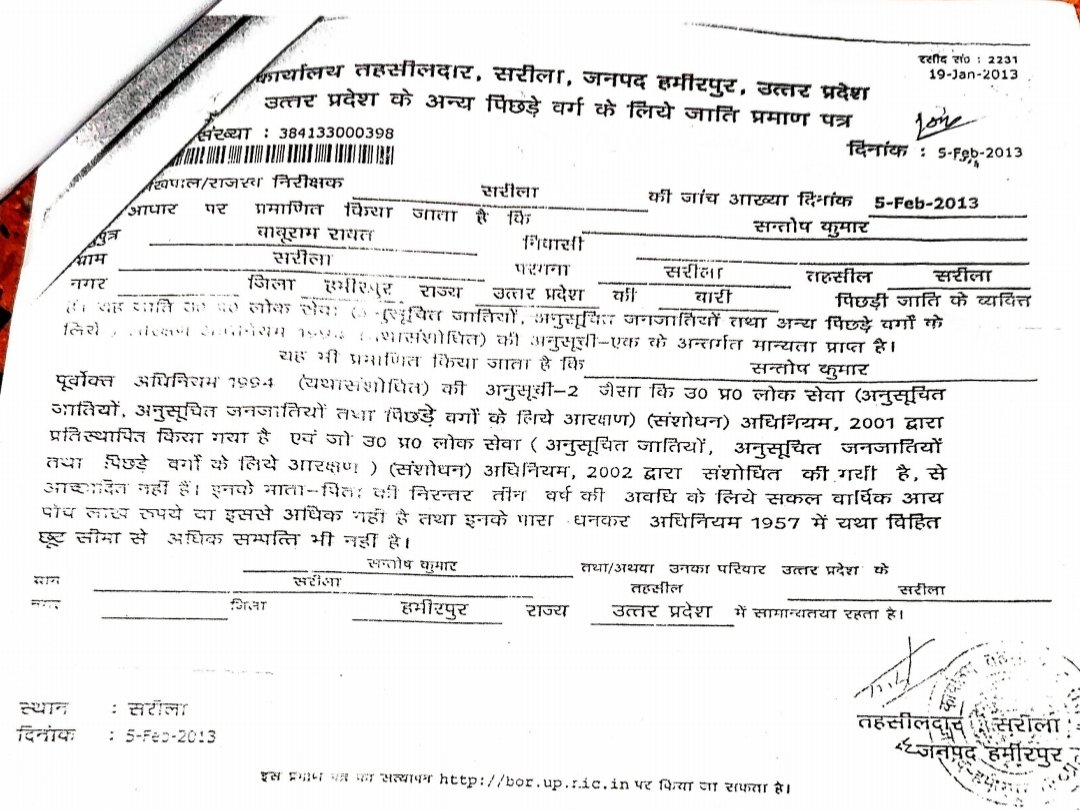 रसीद सं० : 2231
19-Jan-2013
कार्यालय तहसीलदार, सरीला, जनपद हमीरपुर, उत्तर प्रदेश
उत्तर प्रदेश के अन्य पिछड़े वर्ग के लिये जाति प्रमाण पत्र
संख्या : 384133000398
दिनांक : 5-Feb-2013
राजस्व निरीक्षक सरीला की जांच आख्या दिनांक 5-Feb-2013
आधार पर प्रमाणित किया जाता है कि सन्तोष कुमार
पुत्र बाबूराम रायत निवासी
ग्राम सरीला परगना सरीला तहसील सरीला
नगर जिला हमीरपुर राज्य उत्तर प्रदेश की बारी पिछड़ी जाति के व्यक्ति
है। यह जाति उ० प्र० लोक सेवा (अनुसूचित जातियों, अनुसूचित जनजातियों तथा अन्य पिछड़े वर्गो के
लिये आरक्षण अधिनियम 1994 (यथासंशोधित) की अनुसूची-एक के अन्तर्गत मान्यता प्राप्त है।
यह भी प्रमाणित किया जाता है कि सन्तोष कुमार
पूर्वोक्त अधिनियम 1994 (यथासंशोधित) की अनुसूची-2 जैसा कि उ० प्र० लोक सेवा (अनुसूचित
जातियों, अनुसूचित जनजातियों तथा पिछड़े वर्गो के लिये आरक्षण) (संशोधन) अधिनियम, 2001 द्वारा
प्रतिस्थापित किया गया है एवं जो उ० प्र० लोक सेवा ( अनुसूचित जातियों, अनुसूचित जनजातियों
तथा पिछड़े वर्गो के लिये आरक्षण ) (संशोधन) अधिनियम, 2002 द्वारा संशोधित की गयी है, से
आच्छादित नहीं हैं। इनके माता-पिता की निरन्तर तीन वर्ष की अवधि के लिये सकल वार्षिक आय
पाँच लाख रूपये या इससे अधिक नही है तथा इनके पास धनकर अधिनियम 1957 में यथा विहित
छूट सीमा से अधिक सम्पत्ति भी नहीं है।
सन्तोष कुमार तथा/अथवा उनका परिवार उत्तर प्रदेश के
ग्राम सरीला तहसील सरीला
नगर जिला हमीरपुर राज्य उत्तर प्रदेश में सामान्यतया रहता है।
स्थान : सरीला
दिनांक : 5-Feb-2013
तहसीलदार सरीला
जनपद हमीरपुर
इस प्रमाण पत्र का सत्यापन http://bor.up.nic.in पर किया जा सकता है।